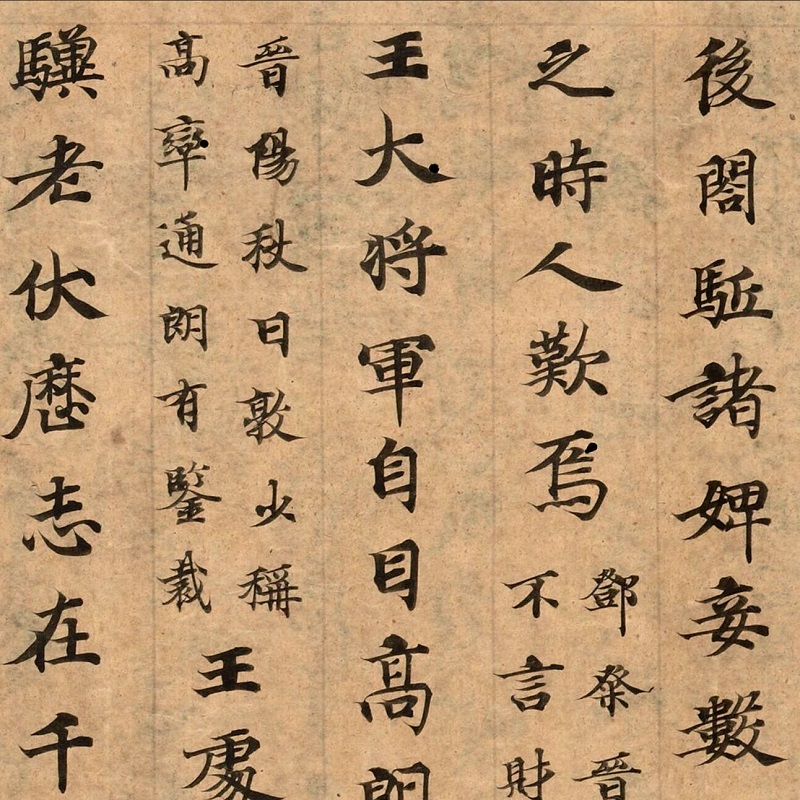 後閤駈諸婢妾數
之時人歎焉
鄧粲晉
不言財
王大将軍自目高朗
晉陽秋曰敦少稱
高率通朗有鑒裁
王處
驥老伏歷志在千